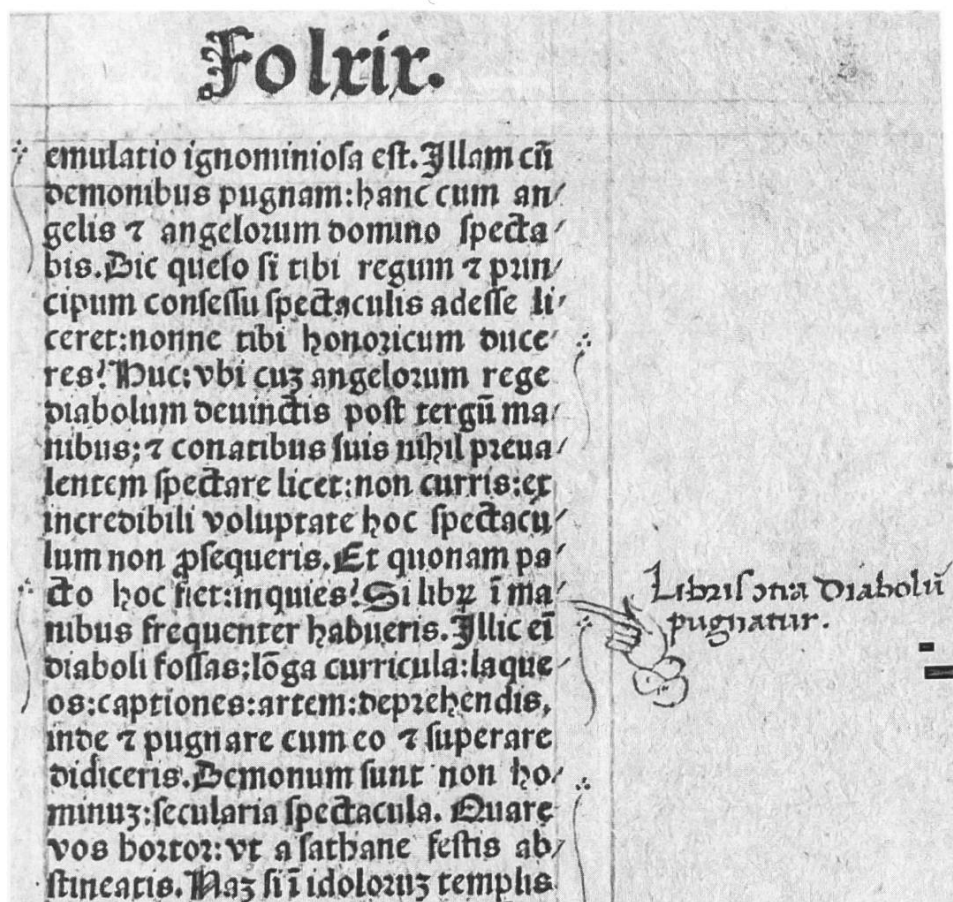 Fol xix.
emulatio ignominiosa est. Illam cū
demonibus pugnam: hanc cum an⸗
gelis ⁊ angelorum domino specta⸗
bis. Dic queso si tibi regum ⁊ prin⸗
cipum consessu spectaculis adesse li⸗
ceret: nonne tibi honoricum duce⸗
res? Huc: vbi cuʒ angelorum rege
diabolum deuinctis post tergū ma⸗
nibus: ⁊ conatibus suis nihil preua⸗
lentem spectare licet: non curris: et
incredibili voluptate hoc spectacu⸗
lum non ꝓsequeris. Et quonam pa⸗
cto hoc fiet: inquies? Si libꝝ ī ma⸗
nibus frequenter habueris. Illic eī
diaboli fossas: lōga curricula: laque⸗
os: captiones: artem: deprehendis,
inde ⁊ pugnare cum eo ⁊ superare
didiceris. Demonum sunt non ho⸗
minuʒ: secularia spectacula. Quare
vos hortor: vt a sathane festis ab⸗
stineatis. Naʒ si ī idoloruʒ templis
Libris ↄtra Diabolū
pugnatur.